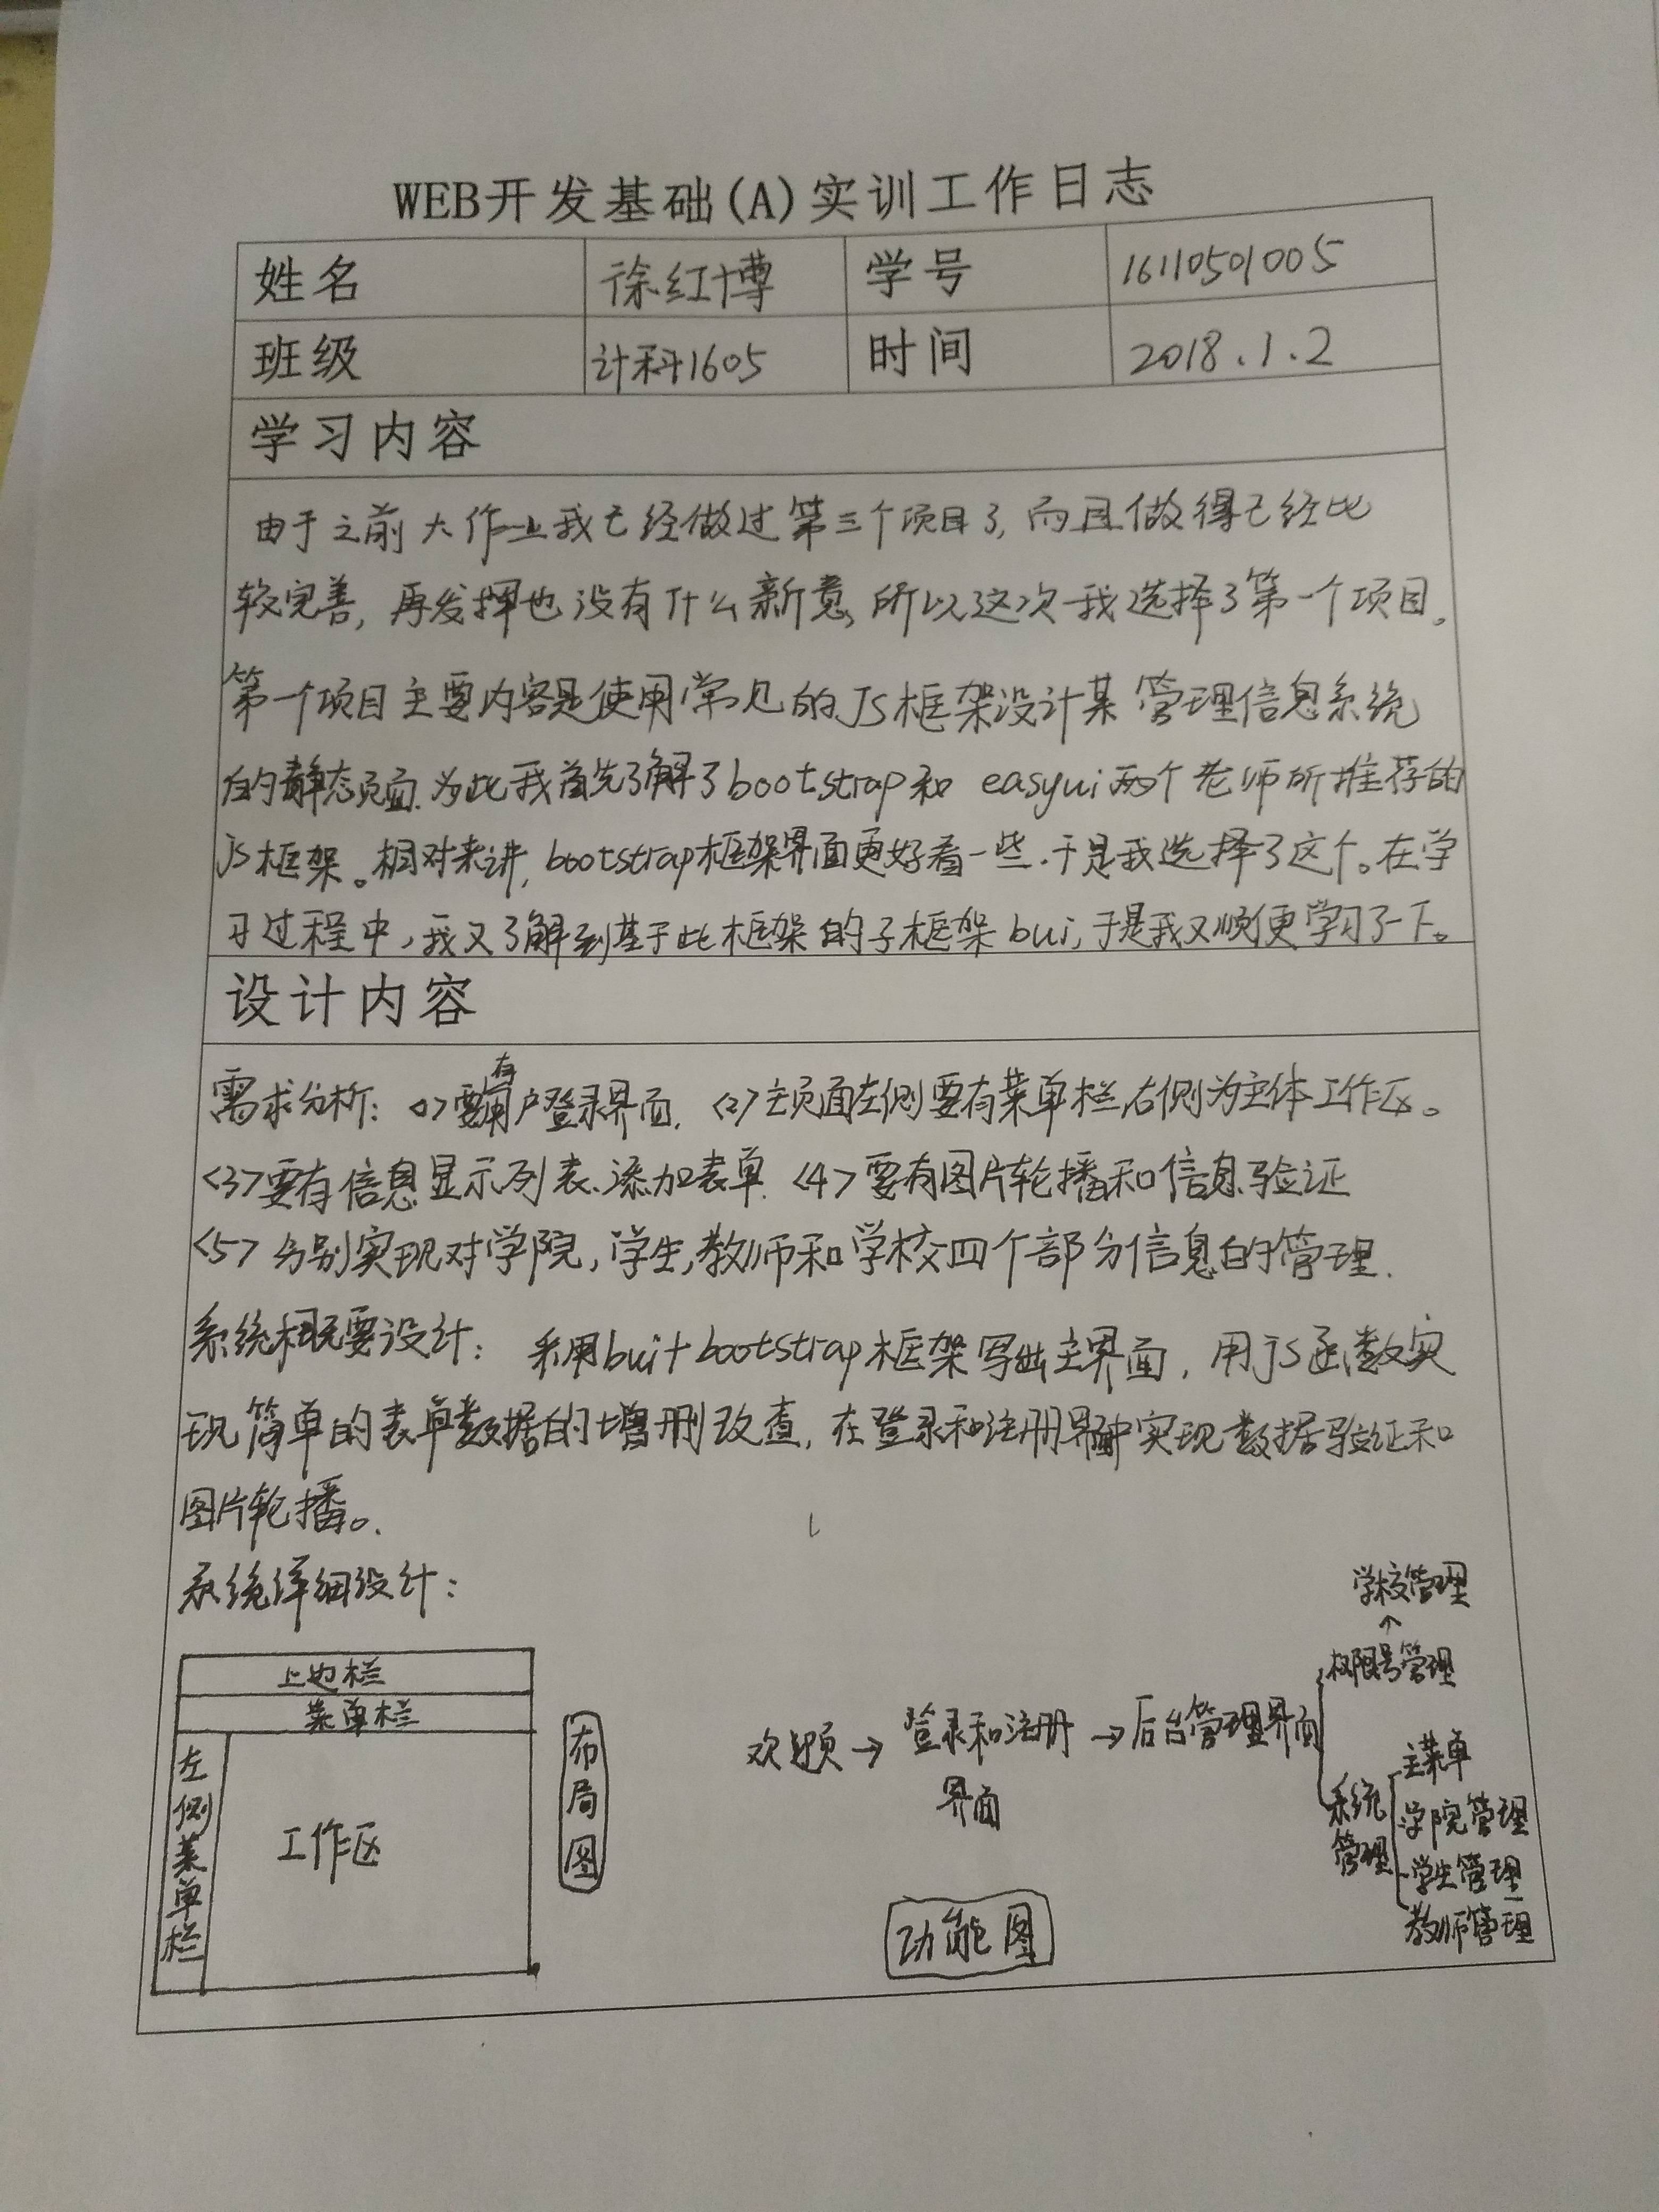 WEB开发基础(A)实训工作日志
姓名 徐红博 学号 16110501005
班级 计科1605 时间 2018.1.2
学习内容
由于之前大作业我已经做过第三个项目了,而且做得已经比
较完善,再发挥也没有什么新意,所以这次我选择了第一个项目。
第一个项目主要内容是使用常见的JS框架设计某管理信息系统
的静态页面.为此我首先了解了bootstrap和easyui两个老师所推荐的
JS框架。相对来讲,bootstrap框架界面更好看一些.于是我选择了这个。在学
习过程中,我又了解到基于此框架的子框架bui,于是我又顺便学习了一下。
设计内容
需求分析:<1>要有用户登录界面.<2>主页面左侧要有菜单栏,右侧为主体工作区。
<3>要有信息显示列表、添加表单.<4>要有图片轮播和信息验证
<5>分别实现对学院,学生,教师和学校四个部分信息的管理.
系统概要设计:采用bui+bootstrap框架写出主界面,用JS函数实
现简单的表单数据的增删改查,在登录和注册界面中实现数据验证和
图片轮播。
系统详细设计:
上边栏
菜单栏
左侧菜单栏
工作区
布局图
欢迎页→登录和注册界面→后台管理界面
学校管理
↑
权限号管理
系统管理
主菜单
学院管理
学生管理
教师管理
功能图